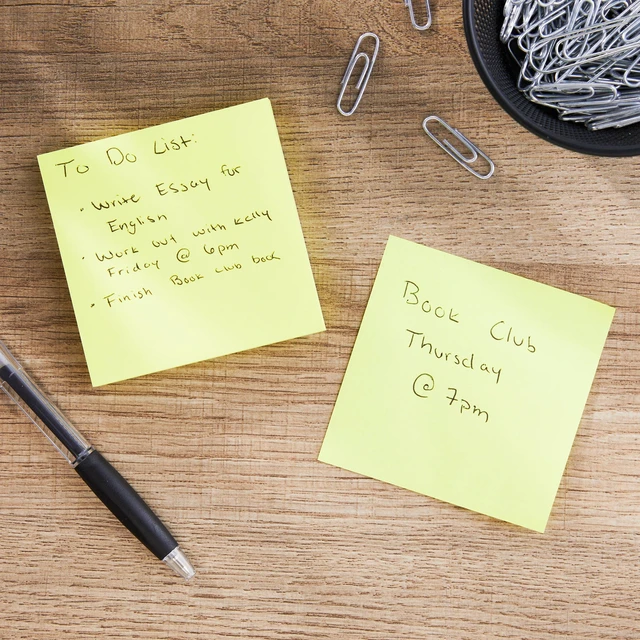 To Do List:
• Write Essay for
English
• Work out with Kelly
Friday @ 6pm
• Finish Book Club book
Book Club
Thursday
@ 7pm